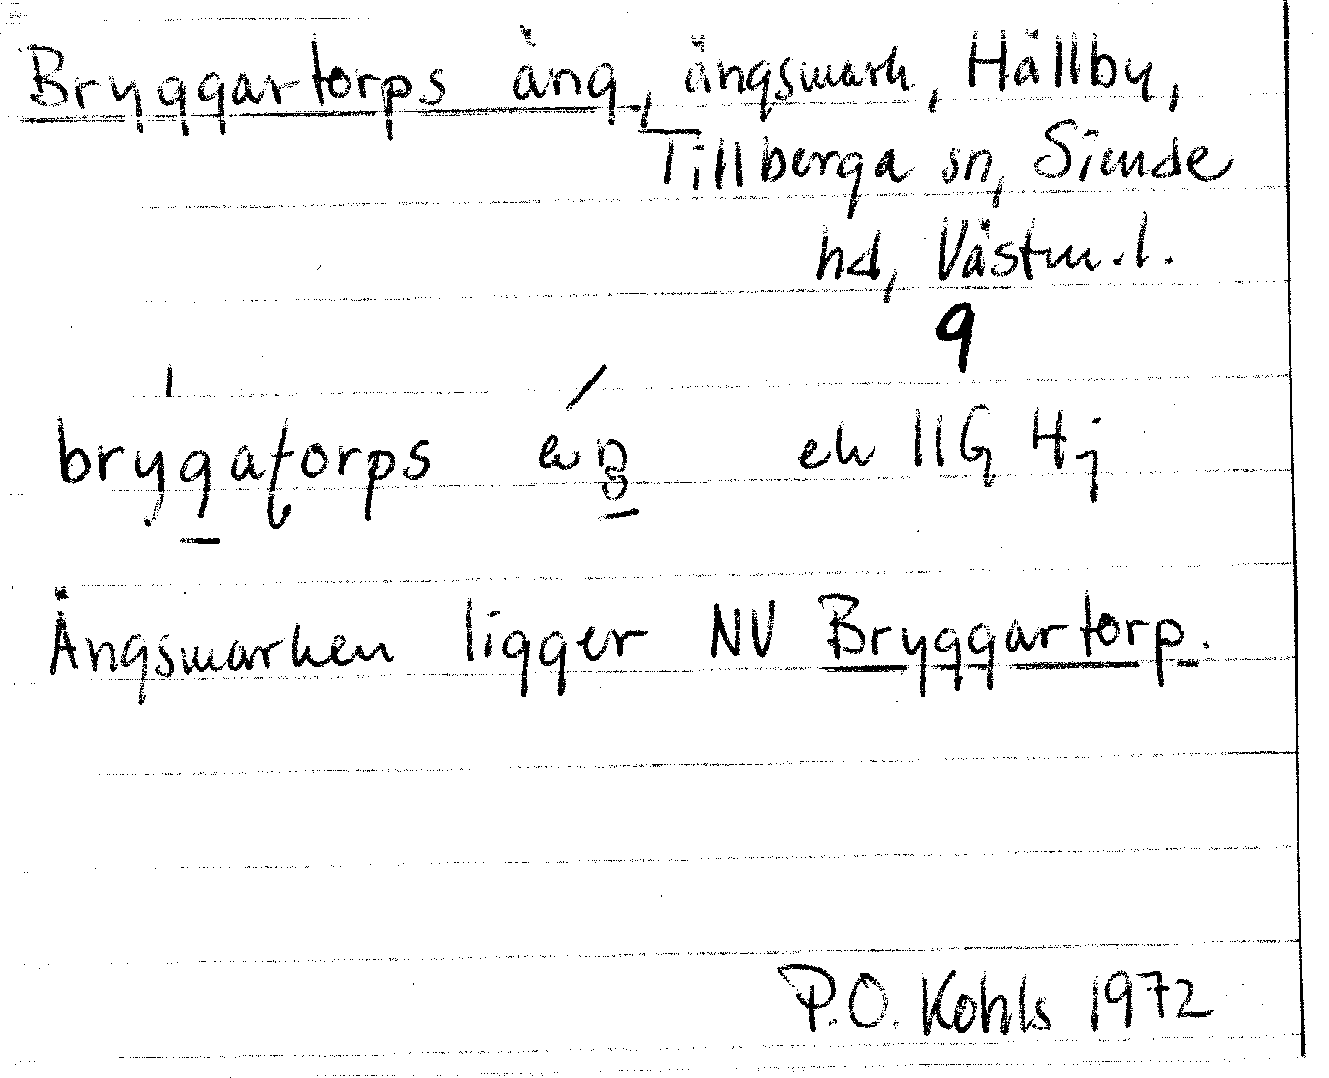 Bryggartorps äng, ängsmark, Hällby,
Tillberga sn, Siende
hd, Västm.l.
9
ek 11G Hj
Ängsmarken ligger NV Bryggartorp.
P.O. Kohls 1972